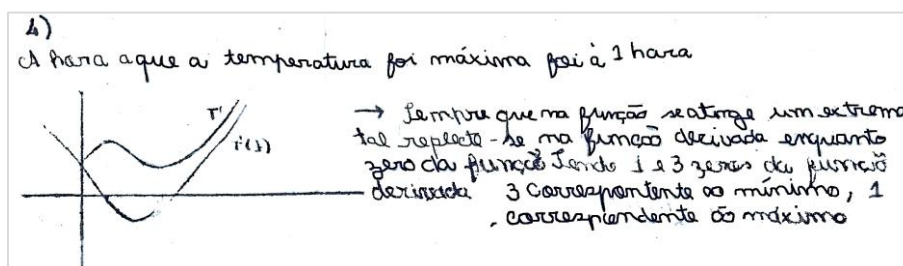 4)
A hora a que a temperatura foi máxima foi à 1 hora
T'
i'(t)
→ Sempre que na função se atinge um extremo
tal reflecte-se na função derivada enquanto
zero da função Sendo 1 e 3 zeros da função
derivada 3 correspontente ao mínimo, 1
correspondente ao máximo